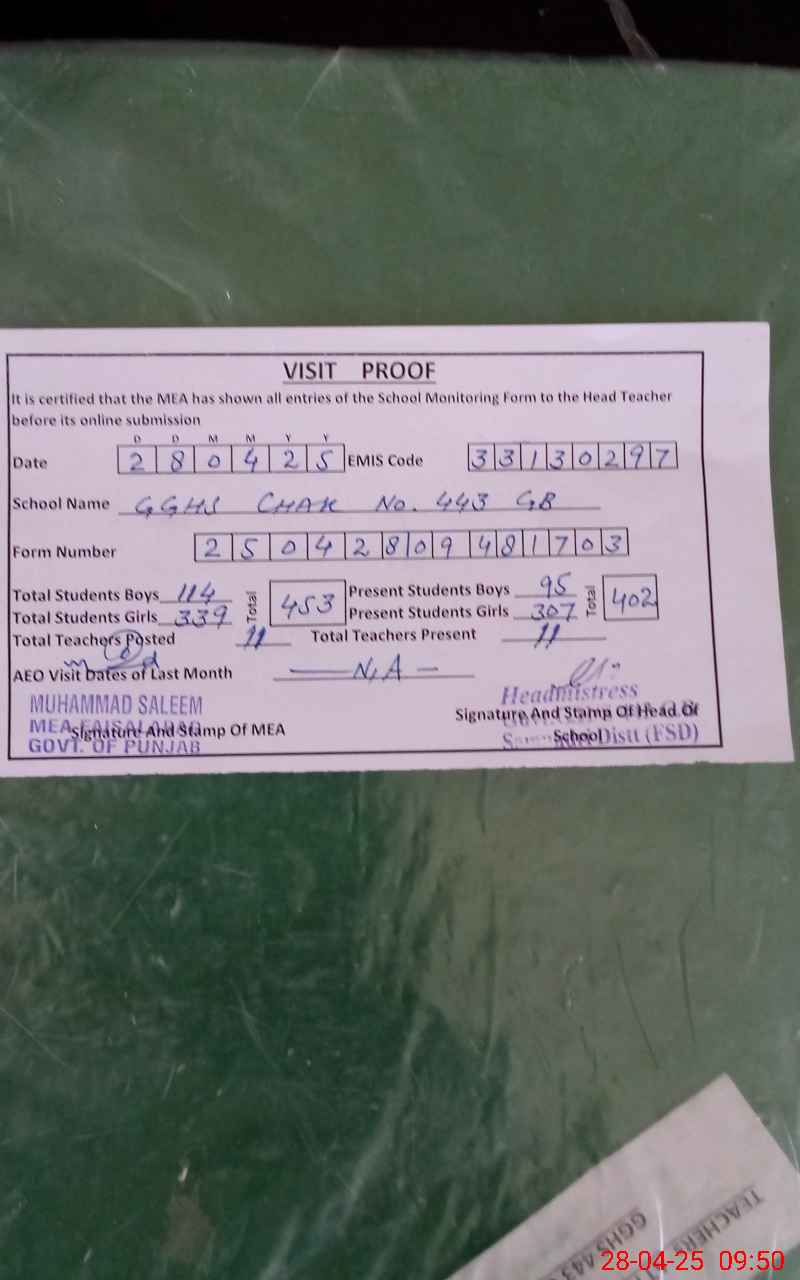 VISIT PROOF
It is certified that the MEA has shown all entries of the School Monitoring Form to the Head Teacher
before its online submission
D D M M Y Y
Date 2 8 0 4 2 5 EMIS Code 3 3 1 3 0 2 9 7
School Name GGHS CHAK No. 443 GB
Form Number 2 5 0 4 2 8 0 9 4 8 1 7 0 3
Total Students Boys 114 Total 453 Present Students Boys 95 Total 402
Total Students Girls 339 Present Students Girls 307
Total Teachers Posted 11 Total Teachers Present 11
AEO Visit Dates of Last Month N,A
MUHAMMAD SALEEM
MEA FAISALABAD
GOVT. OF PUNJAB
Signature And Stamp Of MEA
Headmistress
Signature And Stamp Of Head Of
School
Distt (FSD)
TEACHER
GGHS 443
28-04-25 09:50